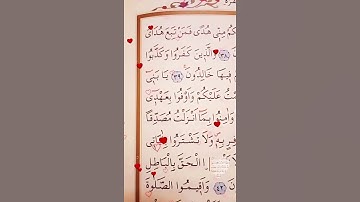 كُمْ مِنِّي هُدًى فَمَنْ تَبِعَ هُدَايَ
٣٨ وَالَّذِينَ كَفَرُوا وَكَذَّبُوا
فِيهَا خَالِدُونَ ٣٩ يَا بَنِي
مْتُ عَلَيْكُمْ وَاَوْفُوا بِعَهْدِي
وَاٰمِنُوا بِمَا اَنْزَلْتُ مُصَدِّقًا
وَلَا تَشْتَرُوا
الْحَقَّ بِالْبَاطِلِ
٤٢ وَاَقِيمُوا الصَّلٰوةَ